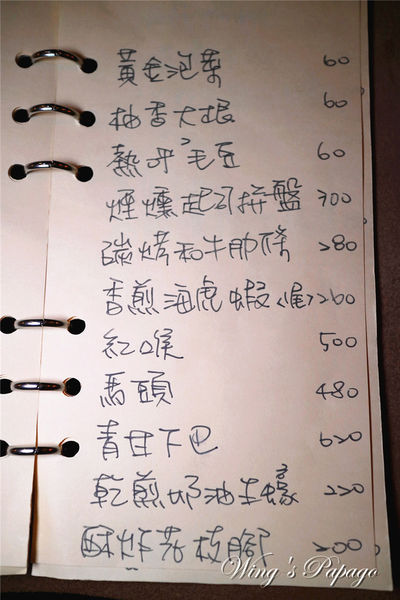 黃金泡菜 60
柚香大根 60
熱呼毛豆 60
煙燻起司拼盤 200
碳烤和牛肋條 280
香煎海虎蝦(隻) 260
紅喉 500
馬頭 480
青甘下巴 620
乾煎奶油生蠔 220
酥炸花枝腳 200
Wing's Papago